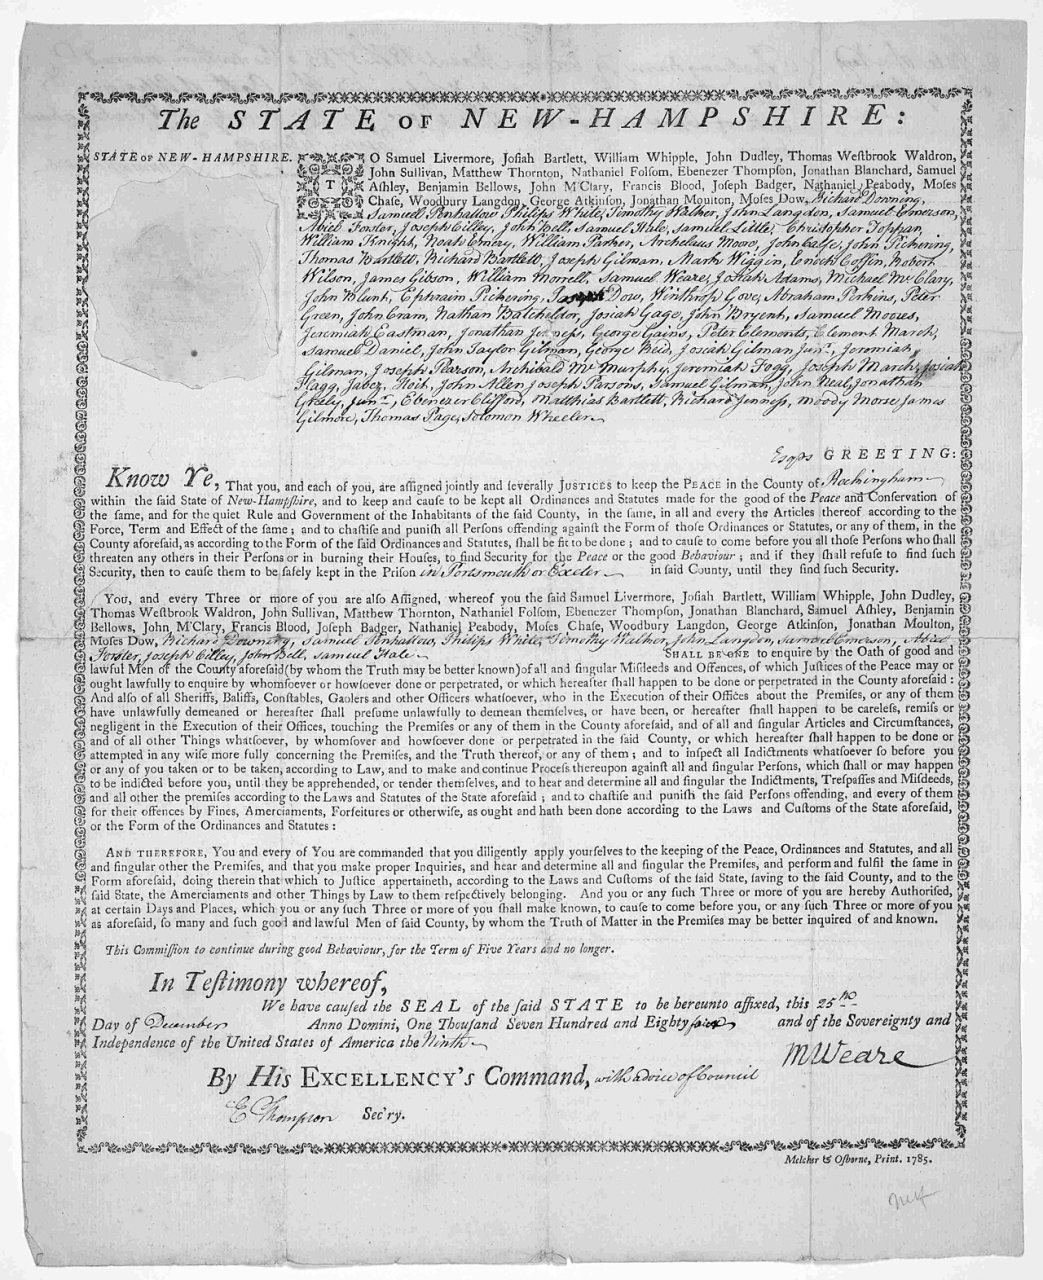 The STATE OF NEW-HAMPSHIRE:
STATE OF NEW-HAMPSHIRE.
TO Samuel Livermore, Joſiah Bartlett, William Whipple, John Dudley, Thomas Weſtbrook Waldron,
John Sullivan, Matthew Thornton, Nathaniel Folſom, Ebenezer Thompſon, Jonathan Blanchard, Samuel
Aſhley, Benjamin Bellows, John M'Clary, Francis Blood, Joſeph Badger, Nathaniel Peabody, Moses
Chaſe, Woodbury Langdon, George Atkinſon, Jonathan Moulton, Moses Dow, Richard Downing,
Samuel Penhallow Philips White, Timothy Walker, John Langdon, Samuel Emerson,
Abiel Foster, Joseph Cilley, John Bell, Samuel Hale, Samuel Little, Christopher Toppan,
William Knight, Noah Emery, William Parker, Archelaus Moore, John Calfe, John Pickering,
Thomas Bartlett, Richard Bartlett, Joseph Gilman, Mark Wiggin, Enoch Coffin, Robert
Wilson, James Gibson, William Morrell, Samuel Weare, Josiah Adams, Michael Mc Clary,
John Blunt, Ephraim Pickering, Dow, Winthrop Gove, Abraham Perkins, Peter
Green, John Cram, Nathan Batchelder, Josiah Gage, John Bryent, Samuel Moores,
Jeremiah Eastman, Jonathan Jenness, George Gains, Peter Clements, Clement March,
Samuel Daniel, John Taylor Gilman, George Reid, Josiah Gilman Junr, Jeremiah
Gilman, Joseph Pearson, Archibald Mc Murphy, Jeremiah Fogg, Joseph March, Josiah
Flagg, Jabez Hoit, John Allen Joseph Parsons, Samuel Gilman, John Neal, Jonathan
Greely, Junr, Ebenezer Clifford, Matthias Bartlett, Richard Jenness, Moody Morse James
Gilmore, Thomas Page, Solomon Wheeler
Esqrs GREETING:
Know Ye, That you, and each of you, are aſſigned jointly and ſeverally JUSTICES to keep the PEACE in the County of Rockingham
within the ſaid State of New-Hampſhire, and to keep and cauſe to be kept all Ordinances and Statutes made for the good of the Peace and Conſervation of
the ſame, and for the quiet Rule and Government of the Inhabitants of the ſaid County, in the ſame, in all and every the Articles thereof according to the
Force, Term and Effect of the ſame; and to chaſtiſe and puniſh all Perſons offending againſt the Form of thoſe Ordinances or Statutes, or any of them, in the
County aforeſaid, as according to the Form of the ſaid Ordinances and Statutes, ſhall be fit to be done; and to cauſe to come before you all thoſe Perſons who ſhall
threaten any others in their Perſons or in burning their Houſes, to find Security for the Peace or the good Behaviour; and if they ſhall refuſe to find ſuch
Security, then to cauſe them to be ſafely kept in the Priſon in Portsmouth or Exeter in ſaid County, until they find ſuch Security.
You, and every Three or more of you are alſo Aſſigned, whereof you the ſaid Samuel Livermore, Joſiah Bartlett, William Whipple, John Dudley,
Thomas Weſtbrook Waldron, John Sullivan, Matthew Thornton, Nathaniel Folſom, Ebenezer Thompſon, Jonathan Blanchard, Samuel Aſhley, Benjamin
Bellows, John M'Clary, Francis Blood, Joſeph Badger, Nathaniel Peabody, Moſes Chaſe, Woodbury Langdon, George Atkinſon, Jonathan Moulton,
Moſes Dow, Richard Downing, Samuel Penhallow, Philips White, Timothy Walker, John Langdon, Samuel Emerson, Abiel
Forster, Joseph Cilley, John Bell, Samuel Hale SHALL BE ONE to enquire by the Oath of good and
lawful Men of the County aforeſaid (by whom the Truth may be better known) of all and ſingular Miſdeeds and Offences, of which Juſtices of the Peace may or
ought lawfully to enquire by whomſoever or howſoever done or perpetrated, or which hereafter ſhall happen to be done or perpetrated in the County aforeſaid:
And alſo of all Sheriffs, Baliffs, Conſtables, Gaolers and other Officers whatſoever, who in the Execution of their Offices about the Premiſes, or any of them
have unlawfully demeaned or hereafter ſhall preſume unlawfully to demean themſelves, or have been, or hereafter ſhall happen to be careleſs, remiſs or
negligent in the Execution of their Offices, touching the Premiſes or any of them in the County aforeſaid, and of all and ſingular Articles and Circumſtances,
and of all other Things whatſoever, by whomſover and howſoever done or perpetrated in the ſaid County, or which hereafter ſhall happen to be done or
attempted in any wiſe more fully concerning the Premiſes, and the Truth thereof, or any of them; and to inſpect all Indictments whatſoever ſo before you
or any of you taken or to be taken, according to Law, and to make and continue Proceſs thereupon againſt all and ſingular Perſons, which ſhall or may happen
to be indicted before you, until they be apprehended, or tender themſelves, and to hear and determine all and ſingular the Indictments, Treſpaſſes and Miſdeeds,
and all other the premiſes according to the Laws and Statutes of the State aforeſaid; and to chaſtiſe and puniſh the ſaid Perſons offending, and every of them
for their offences by Fines, Amerciaments, Forfeitures or otherwiſe, as ought and hath been done according to the Laws and Cuſtoms of the State aforeſaid,
or the Form of the Ordinances and Statutes:
AND THEREFORE, You and every of You are commanded that you diligently apply yourſelves to the keeping of the Peace, Ordinances and Statutes, and all
and ſingular other the Premiſes, and that you make proper Inquiries, and hear and determine all and ſingular the Premiſes, and perform and fulfil the ſame in
Form aforeſaid, doing therein that which to Juſtice appertaineth, according to the Laws and Cuſtoms of the ſaid State, ſaving to the ſaid County, and to the
ſaid State, the Amerciaments and other Things by Law to them reſpectively belonging. And you or any ſuch Three or more of you are hereby Authoriſed,
at certain Days and Places, which you or any ſuch Three or more of you ſhall make known, to cauſe to come before you, or any ſuch Three or more of you
as aforeſaid, ſo many and ſuch good and lawful Men of ſaid County, by whom the Truth of Matter in the Premiſes may be better inquired of and known.
This Commiſſion to continue during good Behaviour, for the Term of Five Years and no longer.
In Teſtimony whereof,
We have cauſed the SEAL of the ſaid STATE to be hereunto affixed, this 25th
Day of December Anno Domini, One Thouſand Seven Hundred and Eighty four and of the Sovereignty and
Independence of the United States of America the Ninth
M Weare
By His EXCELLENCY's Command, with advice of Council
E Thompson Sec'ry.
Melcher & Oſborne, Print. 1785.